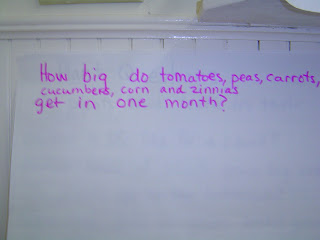 How big do tomatoes, peas, carrots,
cucumbers, corn and zinnias
get in one month?